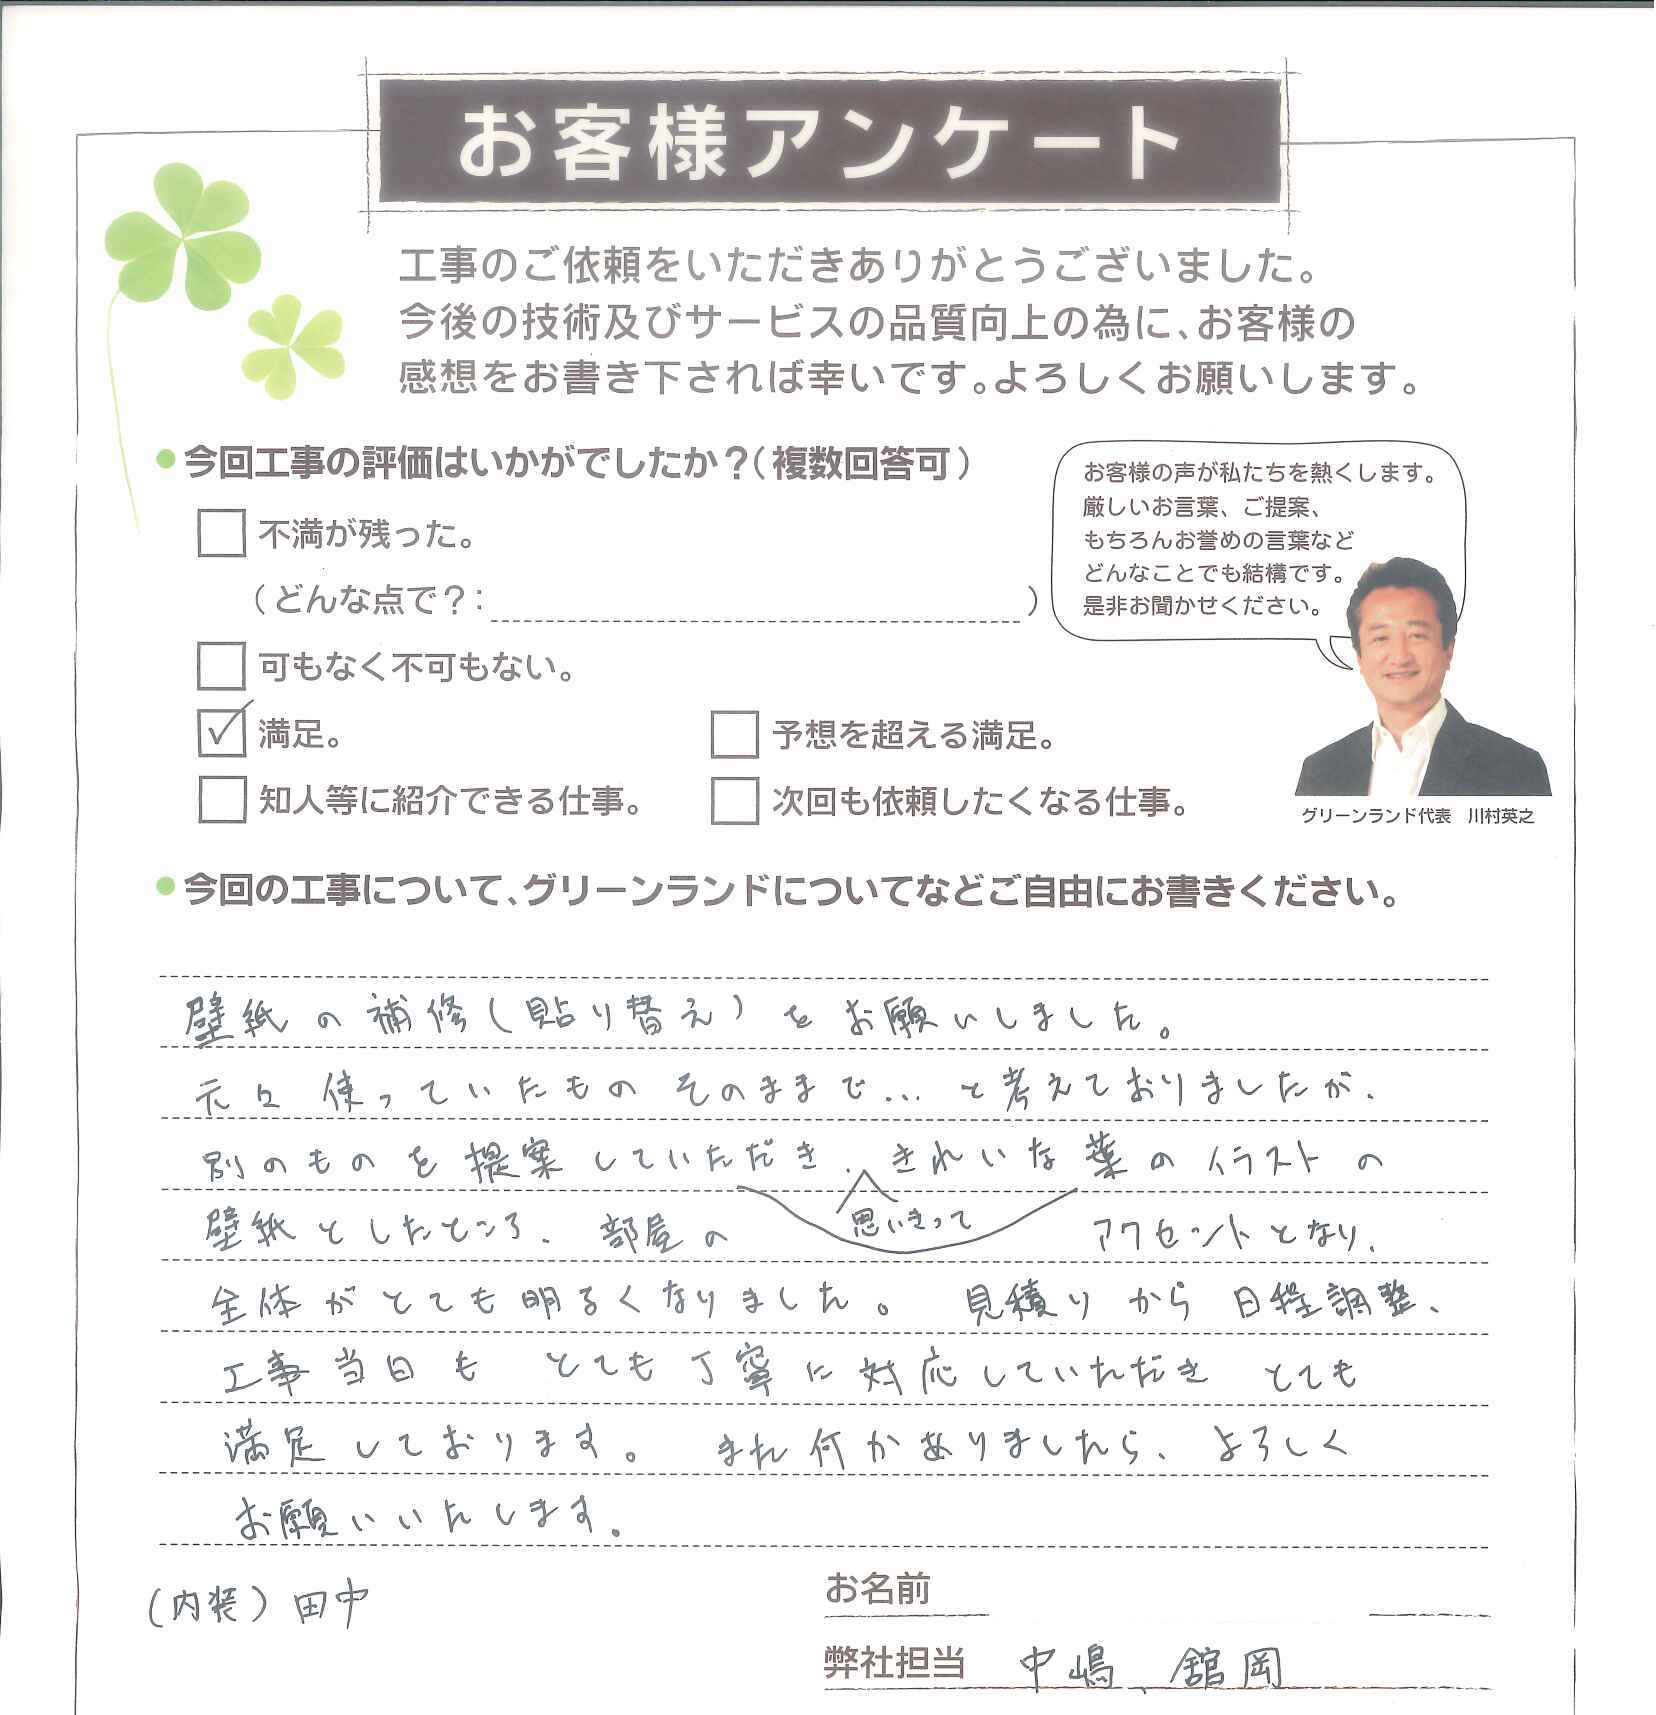 お客様アンケート
工事のご依頼をいただきありがとうございました。
今後の技術及びサービスの品質向上の為に、お客様の
感想をお書き下されば幸いです。よろしくお願いします。
今回工事の評価はいかがでしたか？（複数回答可）
不満が残った。
（どんな点で？：　）
可もなく不可もない。
✓満足。
予想を超える満足。
知人等に紹介できる仕事。
次回も依頼したくなる仕事。
お客様の声が私たちを熱くします。
厳しいお言葉、ご提案、
もちろんお誉めの言葉など
どんなことでも結構です。
是非お聞かせください。
グリーンランド代表　川村英之
今回の工事について、グリーンランドについてなどご自由にお書きください。
壁紙の補修（貼り替え）をお願いしました。
元々使っていたものそのままで…と考えておりましたが、
別のものを提案していただき、きれいな葉のイラストの
思いきって
壁紙としたところ、部屋の　アクセントとなり、
全体がとても明るくなりました。見積りから日程調整、
工事当日も とても丁寧に対応していただき とても
満足しております。また何かありましたら、よろしく
お願いいたします。
（内装）田中
お名前
弊社担当　中嶋、舘岡